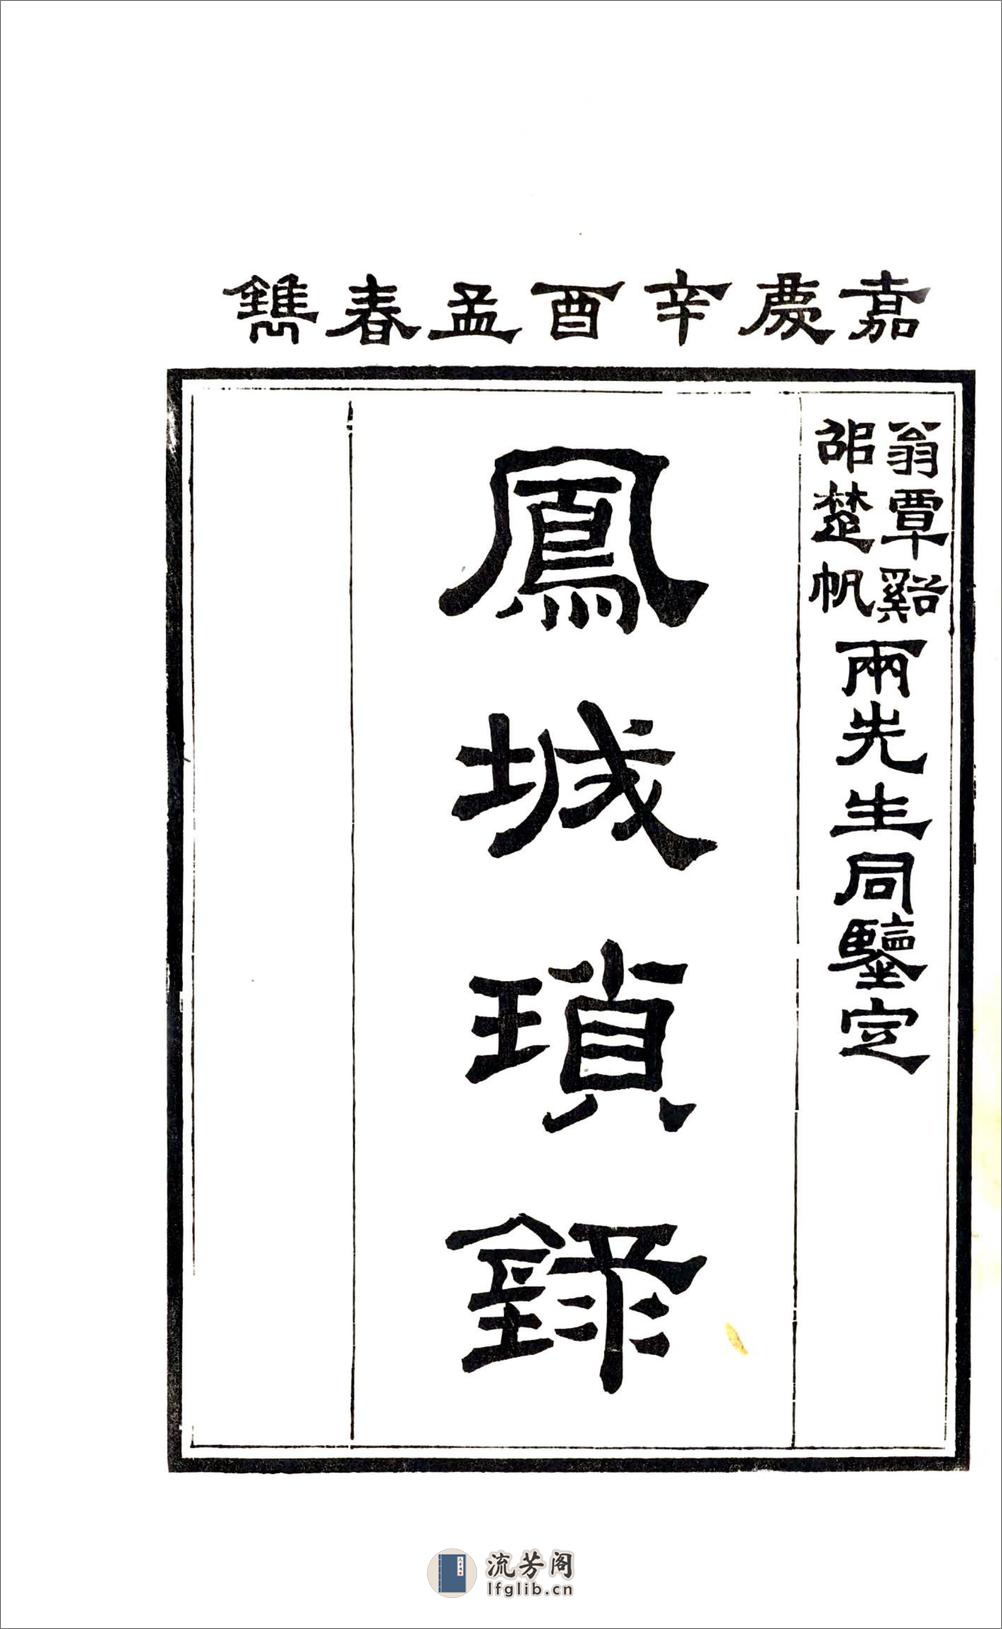 嘉慶辛酉孟春鐫
翁覃谿
邵楚帆
兩先生同鑒定
鳳城瑣錄
流芳阁
lfglib.cn